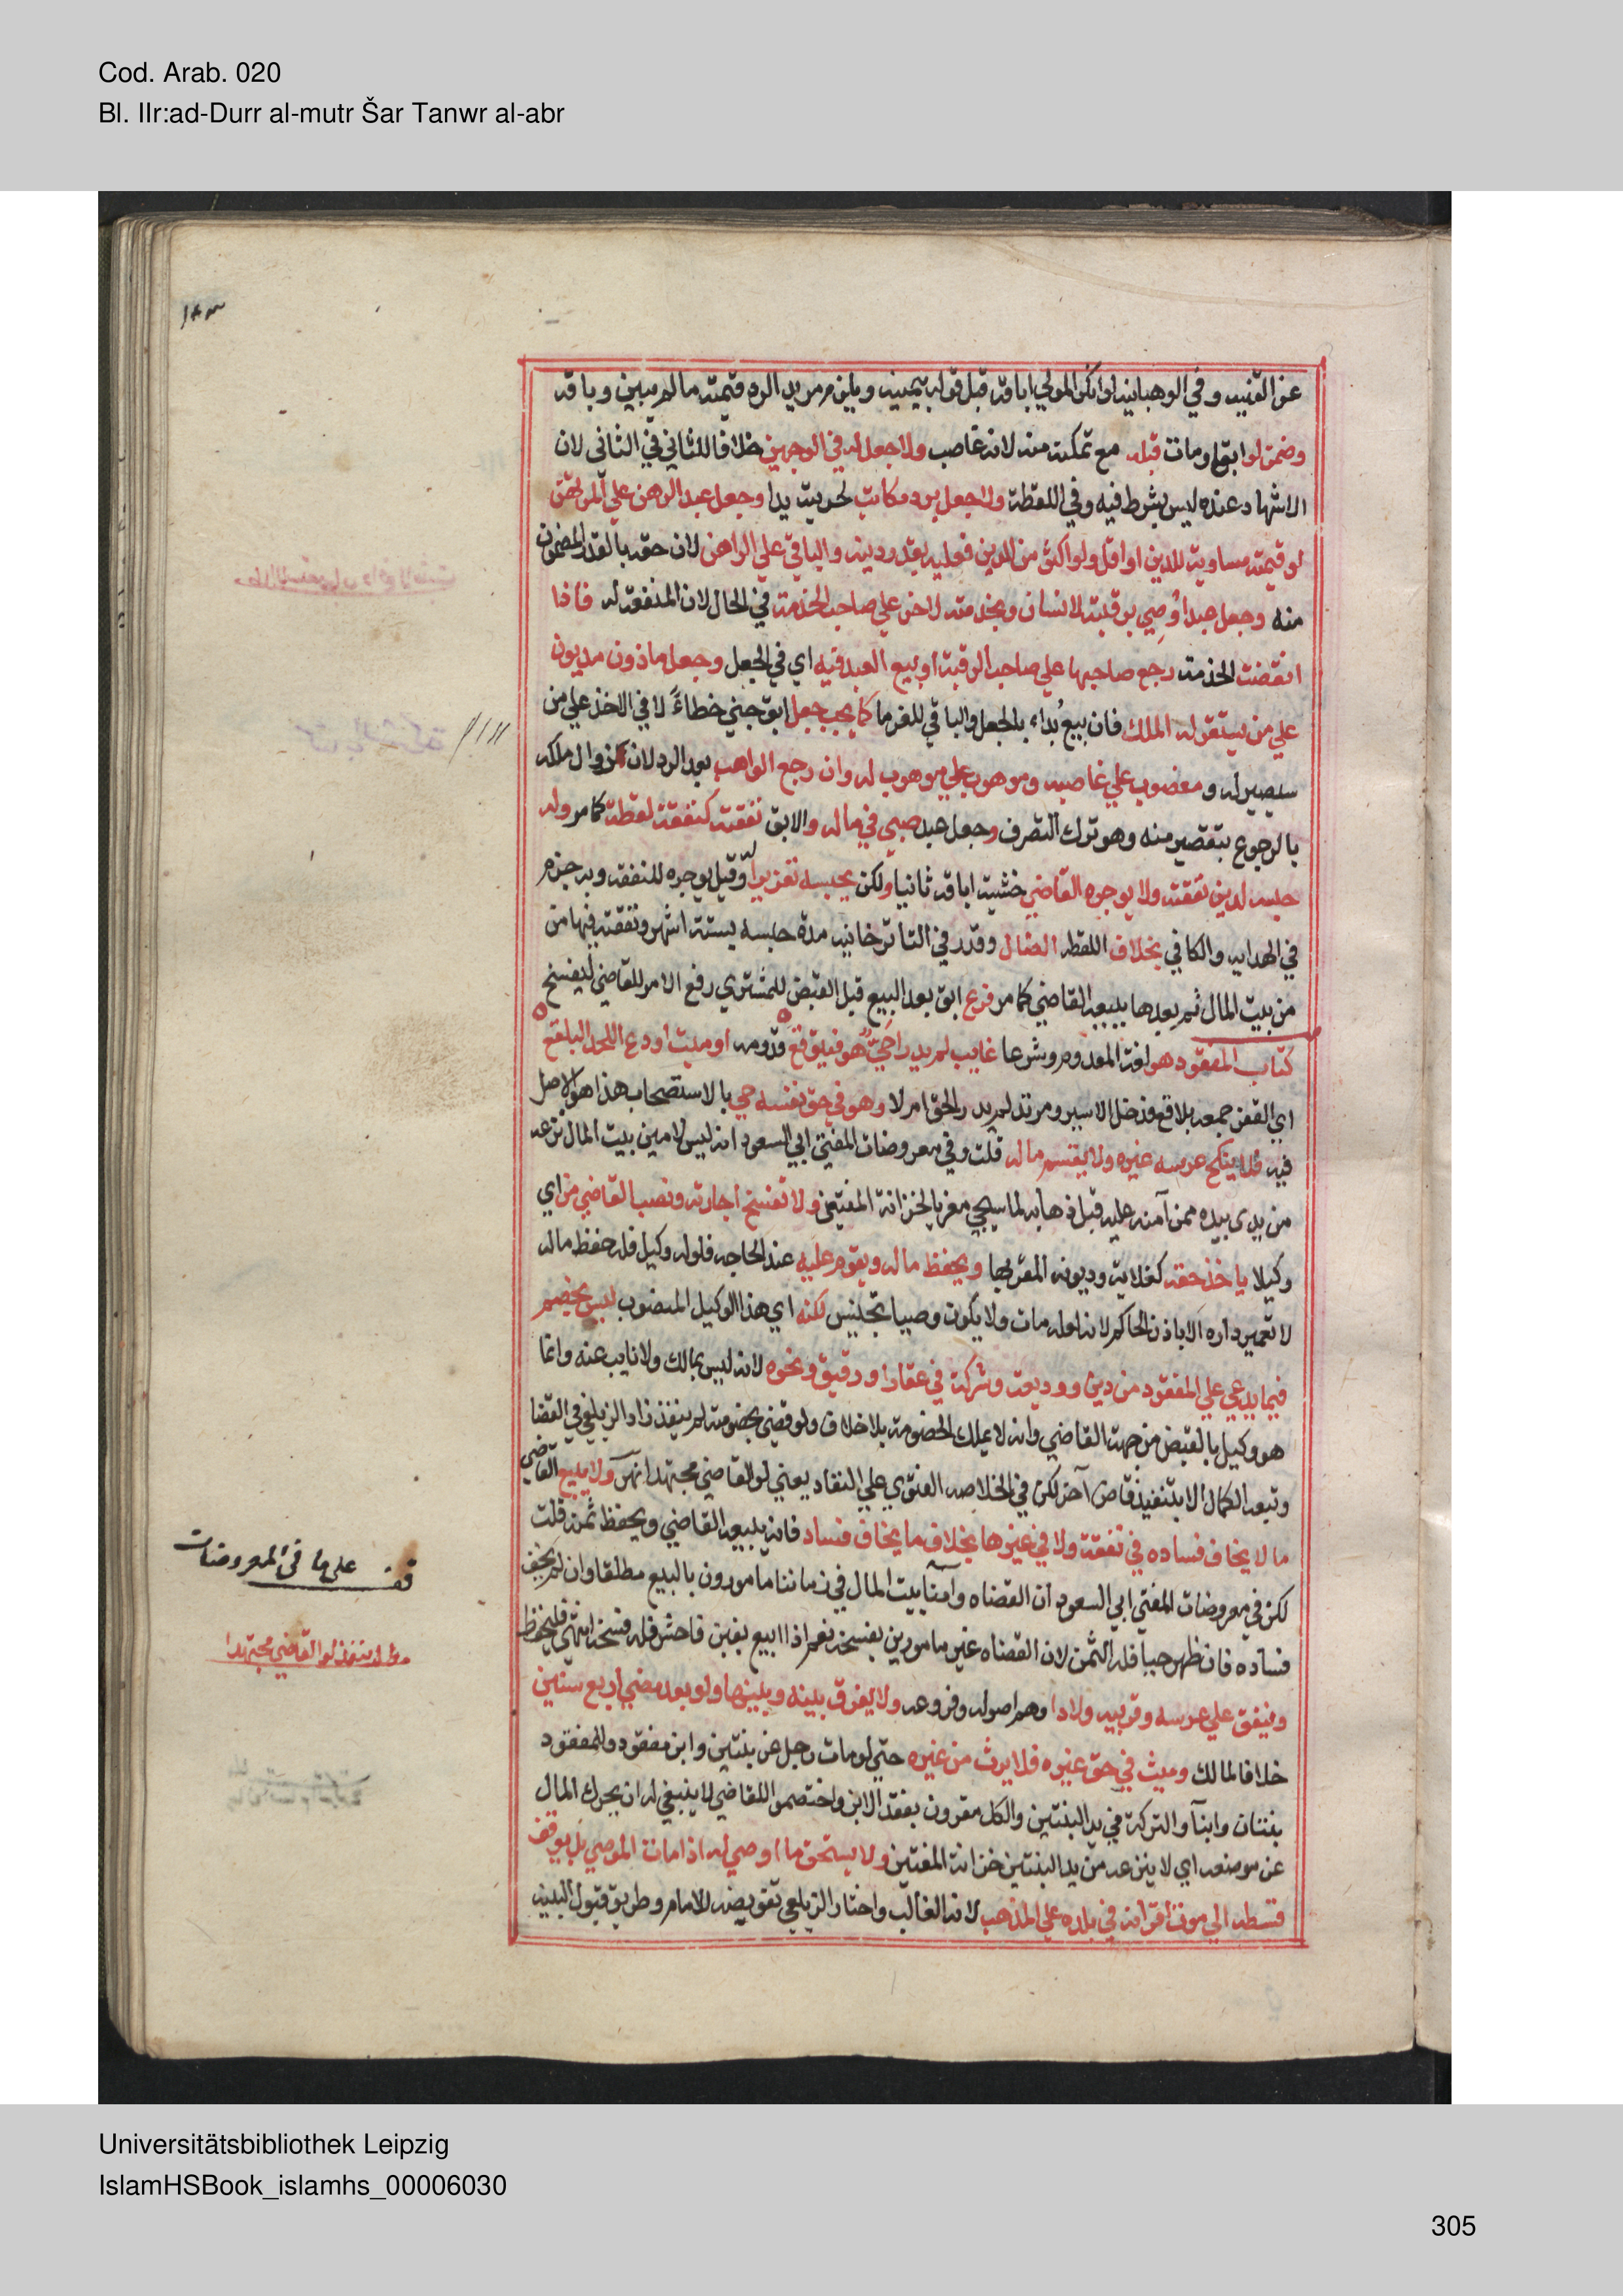 Cod. Arab. 020
Bl. IIr:ad-Durr al-mutr Šar Tanwr al-abr
عن القنيه وفي الوهبانيه لو انكر المولي اباقه قبل قوله بيمينه ويلزم مريد الرد قيمته ما لم يبين وباقه
وضمن لو ابق او مات قبله مع تمكنه منه لانه غاصب ولا جعل له في الوجهين خلافا للثاني في الثاني لان
الاشهاد عنده ليس بشرط فيه وفي اللقطة ولا جعل برد مكاتب لحريته يدا وجعل عبد الرهن علي المرتهن
لو قيمته مساوية للدين او اقل ولو اكثر من الدين فعليه بقدر دينه والباقي علي الراهن لان حقه بالقدر المضمون
منه وجعل عبد اوصي برقبته لانسان وبخدمته لاخر علي صاحب الخدمة في الحال لان المنفعة له فاذا
انقضت الخدمة رجع صاحبها علي صاحب الرقبة او بيع العبد فيه اي في الجعل وجعل ماذون مديون
علي من يستقر له الملك فان بيع بداء بالجعل والباقي للغرما كما يجب جعل ابق جني خطاءً لا في الاخذ علي من
سيصير له ومغصوب علي غاصبه وموهوب علي موهوب له وان رجع الواهب بعد الرد لان زوال ملكه
بالرجوع بتقصير منه وهو ترك التصرف وجعل عبد صبي في ماله والابق نفقته كنفقة لقطة كما مر وله
حبسه لدين نفقته ولا يوجره القاضي خشية اباقه ثانيا ولكن يحبسه تعزيرا وقيل يوجره للنفقه وبه جزم
في الهدايه والكافي بخلاف اللقطه الضال وقدر في التاترخانيه مدة حبسه بستة اشهر ونفقته فيها من
من بيت المال ثم بعدها يبيعه القاضي كما مر فرع ابق بعد البيع قبل القبض للمشتري رفع الامر للقاضي ليفسخ
كتاب المفقود هو لغة المعدوم وشرعا غايب لم يدر احي هو فيتوقع قدومه او ميت اودع اللحد البلقع
اي القفر جمعه بلاقع فدخل الاسير ومرتد لم يدر الحق ام لا وهو في حق نفسه حي بالاستصحاب هذا هو الاصل
فيه فلا ينكح عرسه غيره ولا يقسم ماله قلت وفي معروضات المفتي ابي السعود انه ليس لامين بيت المال نزعه
من يدي بيده ممن آمنه عليه قبل ذهابه لما سيجي معزيا لخزانة المفتين ولا تفسخ اجارته ونصب القاضي من اي
وكيلا ياخذ حقه كغلاته وديونه المقر بها ويحفظ ماله ويقوم عليه عند الحاجه فلو له وكيل فله حفظ ماله
لا تعمير داره الا باذن الحاكم لانه لعله مات ولا يكون وصيا تجنيس لكنه اي هذا الوكيل المنصوب ليس بخصم
فيما يدعي علي المفقود من دين ووديعة وشركة في عقار او رقيق ونحوه لانه ليس بمالك ولا نايب عنه وانما
هو وكيل بالقبض من جهة القاضي وانه لا يملك الخصومة بلا خلاف ولو قضي بخصومته لم ينفذ زاد الزيلعي في القضا
وتبعه الكمال الا بتنفيذ قاض آخر لكن في الخلاصه الفتوي علي النفاد يعني لو القاضي مجتهدا نهر ولا يبيع القاضي
ما لا يخاف فساده في نفقة ولا في غيرها بخلاف ما يخاف فساد فانه يبيعه القاضي ويحفظ ثمنه قلت
لكن في معروضات المفتي ابي السعود ان القضاه وآمنا بيت المال في زماننا مامورون بالبيع مطلقا وان لم يخف
فساده فان ظهر حيا فله الثمن لان القضاه غير مامورين بفسخه نعم اذا بيع بغبن فاحش فله فسخه انتهي فليحفظ
وينفق علي عرسه وقريبه ولادا وهم اصوله وفروعه ولا يفرق بينه وبينها ولو بعد مضي اربع سنين
خلافا لمالك وميت في حق غيره فلا يرث من غيره حتي لو مات رجل عن بنتين وابن مفقود وللمفقود
بنتان وابنآ والتركة في يد البنتين والكل مقرون بفقد الابن واختصموا للقاضي لا ينبغي له ان يحرك المال
عن موضعه اي لا ينزعه من يد البنتين خزانة المفتين ولا يستحق ما اوصي له اذا مات الموصي بل يوقف
قسطه الي موت اقرانه في بلده علي المذهب لانه الغالب واختار الزيلعي تفويضه للامام وطريق قبول البينه
قف على ما فى المعروضات
مط لم ينفذ لو القاضي مجتهدا
Universitätsbibliothek Leipzig
IslamHSBook_islamhs_00006030
305